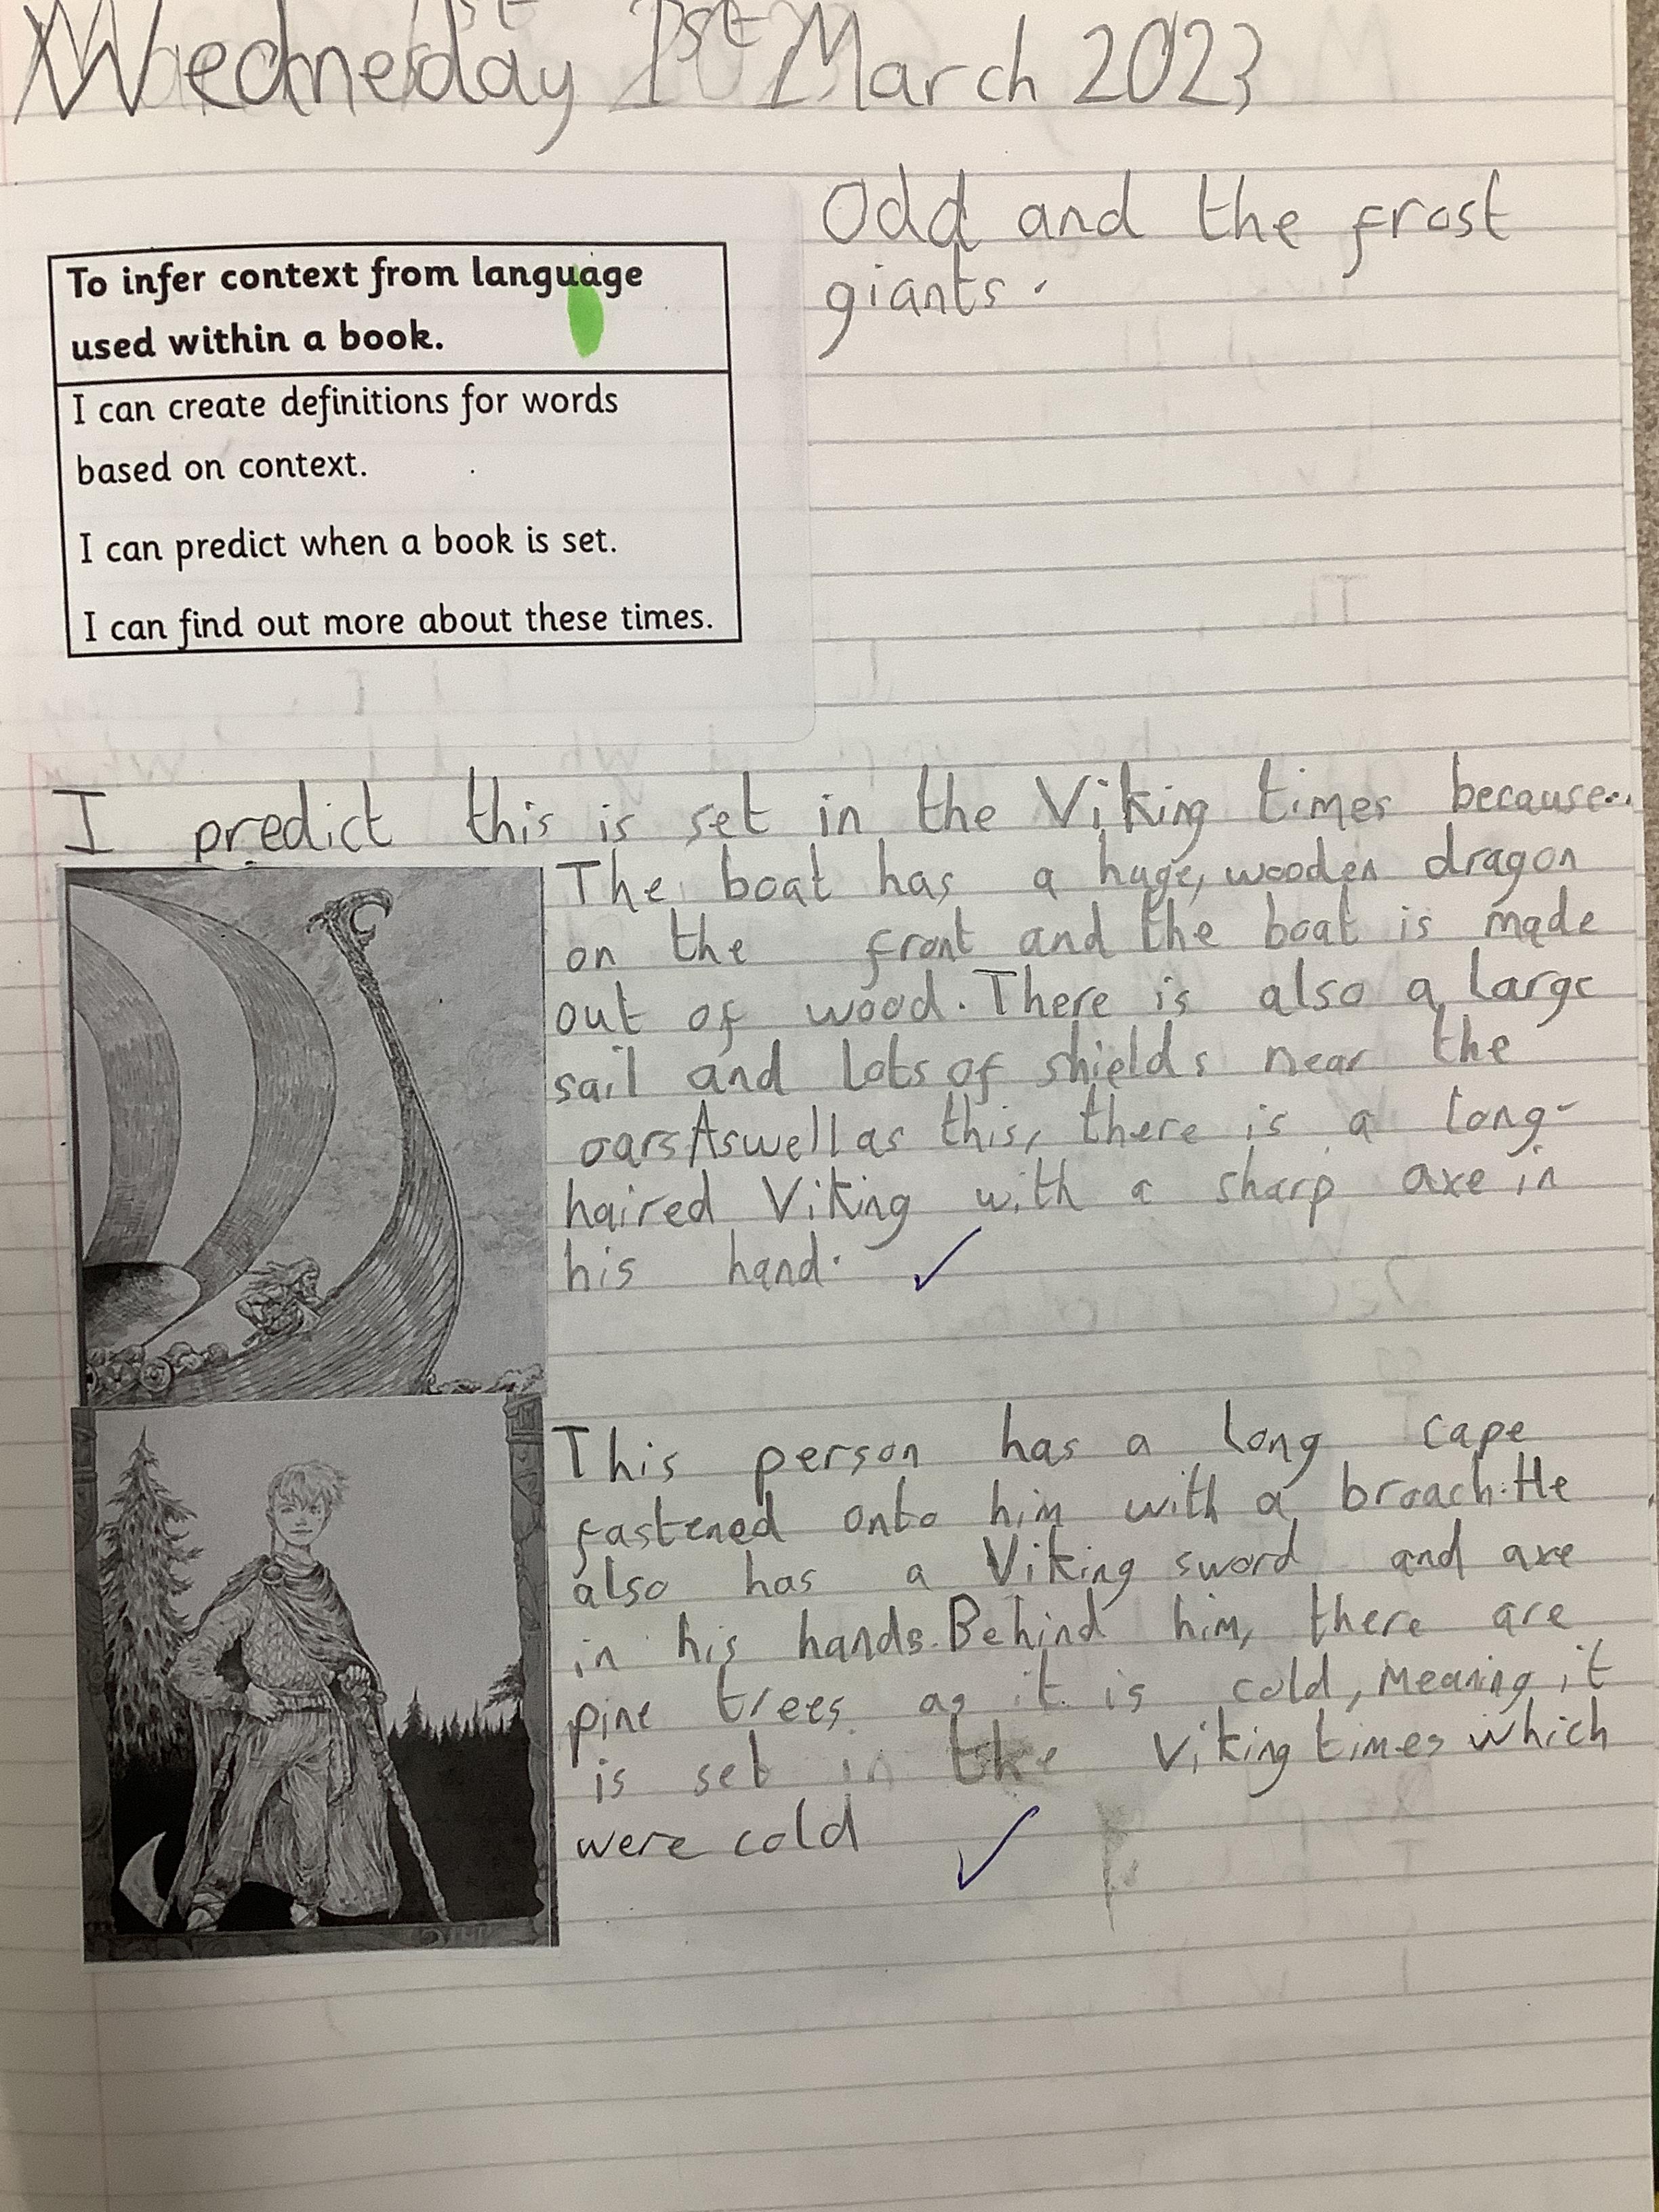 Wednesday 1st March 2023
Odd and the frost
giants.
To infer context from language
used within a book.
I can create definitions for words
based on context.
I can predict when a book is set.
I can find out more about these times.
I predict this is set in the Viking times because...
The boat has a huge, wooden dragon
on the front and the boat is made
out of wood. There is also a large
sail and lots of shields near the
oars As well as this, there is a long-
haired Viking with a sharp axe in
his hand.
This person has a long cape
fastened onto him with a broach. He
also has a Viking sword and axe
in his hands. Behind him, there are
pine trees as it is cold, meaning it
is set in the Viking times which
were cold